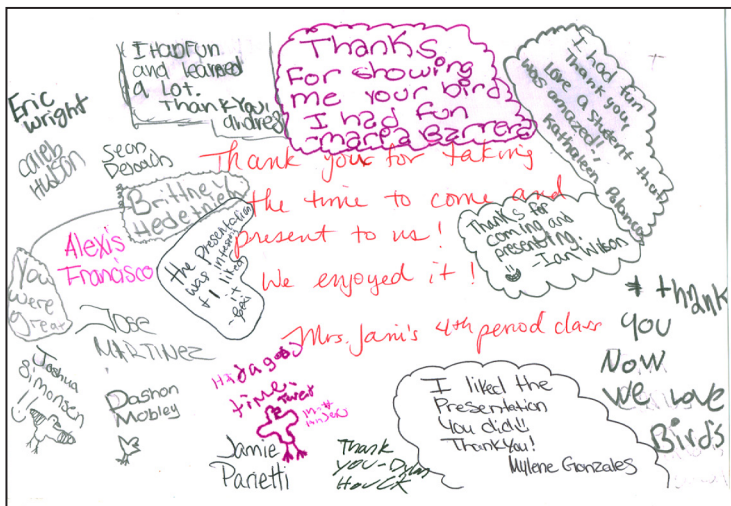 I Had Fun
and learned
a Lot.
Thank You!
andres
Thanks
For showing
me your bird
I had fun
-maria Barrera
I had fun
Thank you,
Love a student that
was amazed!!
Kathaleen Palomares
Eric
Wright
Caleb
Hutson
Sean
DeLoach
Brittney
Hedetniemi
Thank you for taking
the time to come and
present to us!
We enjoyed it!
Mrs. Jani's 4th period class
Alexis
Francisco
The Presentation
was interesting
& I liked
it
Thanks for
coming and
presenting.
-Ian Wilson
You
were
great
Jose
MARTINEZ
Joshua
Simonsen
Dashon
Mobley
Had a good
time.
Tweet
Jamie
Parietti
Thank
you-Dylan
Houck
I liked the
Presentation
You did!!
Thank You!
Mylene Gonzales
thank
you
Now
we Love
Birds